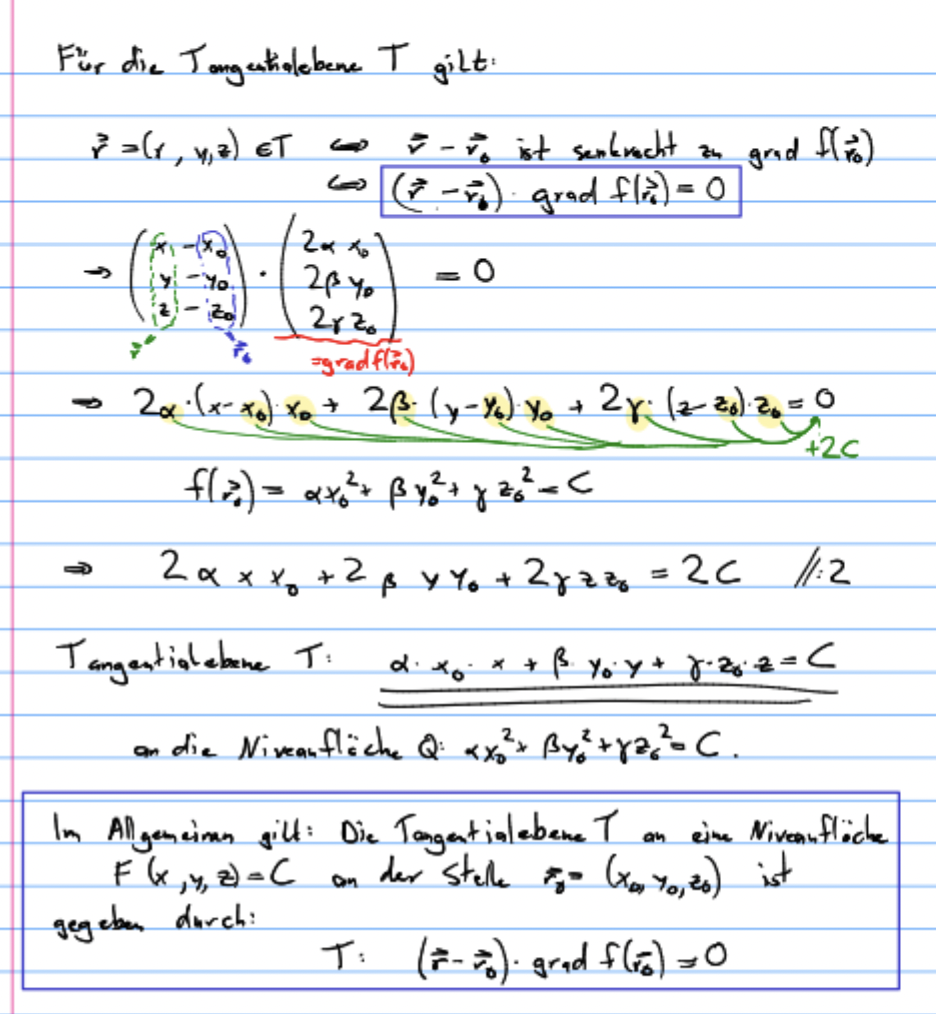 Für die Tangentialebene T gilt:
r⃗ = (x, y, z) ∈ T ⇔ r⃗ - r⃗₀ ist senkrecht zu grad f(r⃗₀)
⇔ (r⃗ - r⃗₀) · grad f(r⃗₀) = 0
→ (x - x₀, y - y₀, z - z₀) · (2α x₀, 2β y₀, 2γ z₀) = 0
r⃗ r⃗₀ = grad f(r⃗₀)
⇒ 2α·(x - x₀)·x₀ + 2β·(y - y₀)·y₀ + 2γ·(z - z₀)·z₀ = 0
+2C
f(r⃗₀) = αx₀² + βy₀² + γz₀² = C
⇒ 2α x x₀ + 2β y y₀ + 2γ z z₀ = 2C //:2
Tangentialebene T: α·x₀·x + β·y₀·y + γ·z₀·z = C
an die Niveaufläche Q: αx₀² + βy₀² + γz₀² = C.
Im Allgemeinen gilt: Die Tangentialebene T an eine Niveaufläche
F(x, y, z) = C an der Stelle r⃗₀ = (x₀, y₀, z₀) ist
gegeben durch:
T: (r⃗ - r⃗₀) · grad f(r⃗₀) = 0